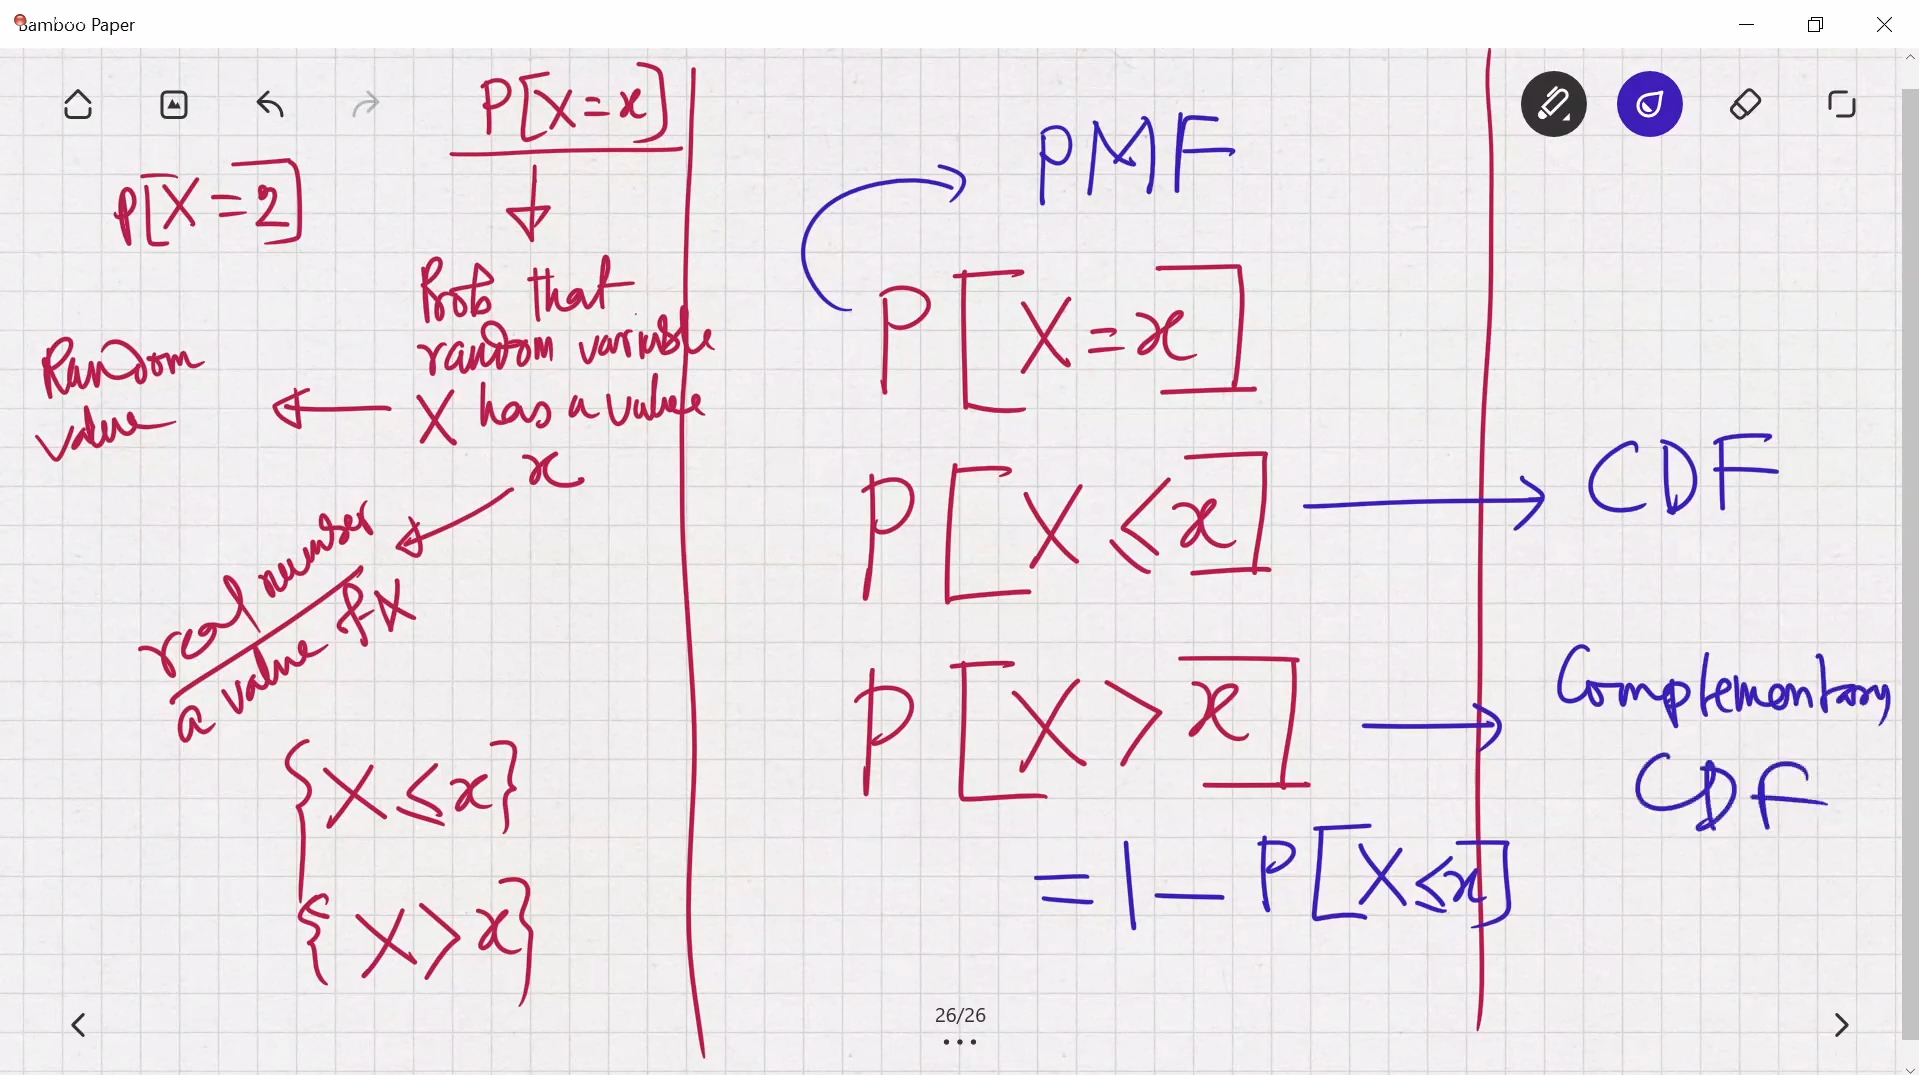 Bamboo Paper
P[X=x]
P[X=2]
Prob that
random variable
X has a value
x
Random
value
real number
a value of X
{X≤x}
{X>x}
PMF
P[X=x]
P[X≤x]
CDF
P[X>x]
Complementary
CDF
=1-P[X≤x]
26/26